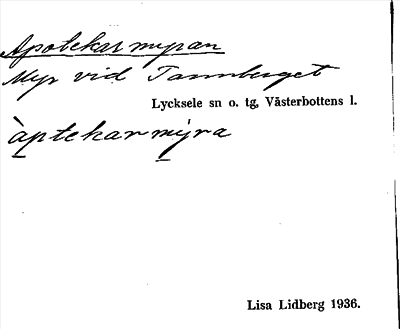 Apotekarmyran
Myr vid Tannberget
Lycksele sn o. tg, Västerbottens l.
àptekarmýra
Lisa Lidberg 1936.